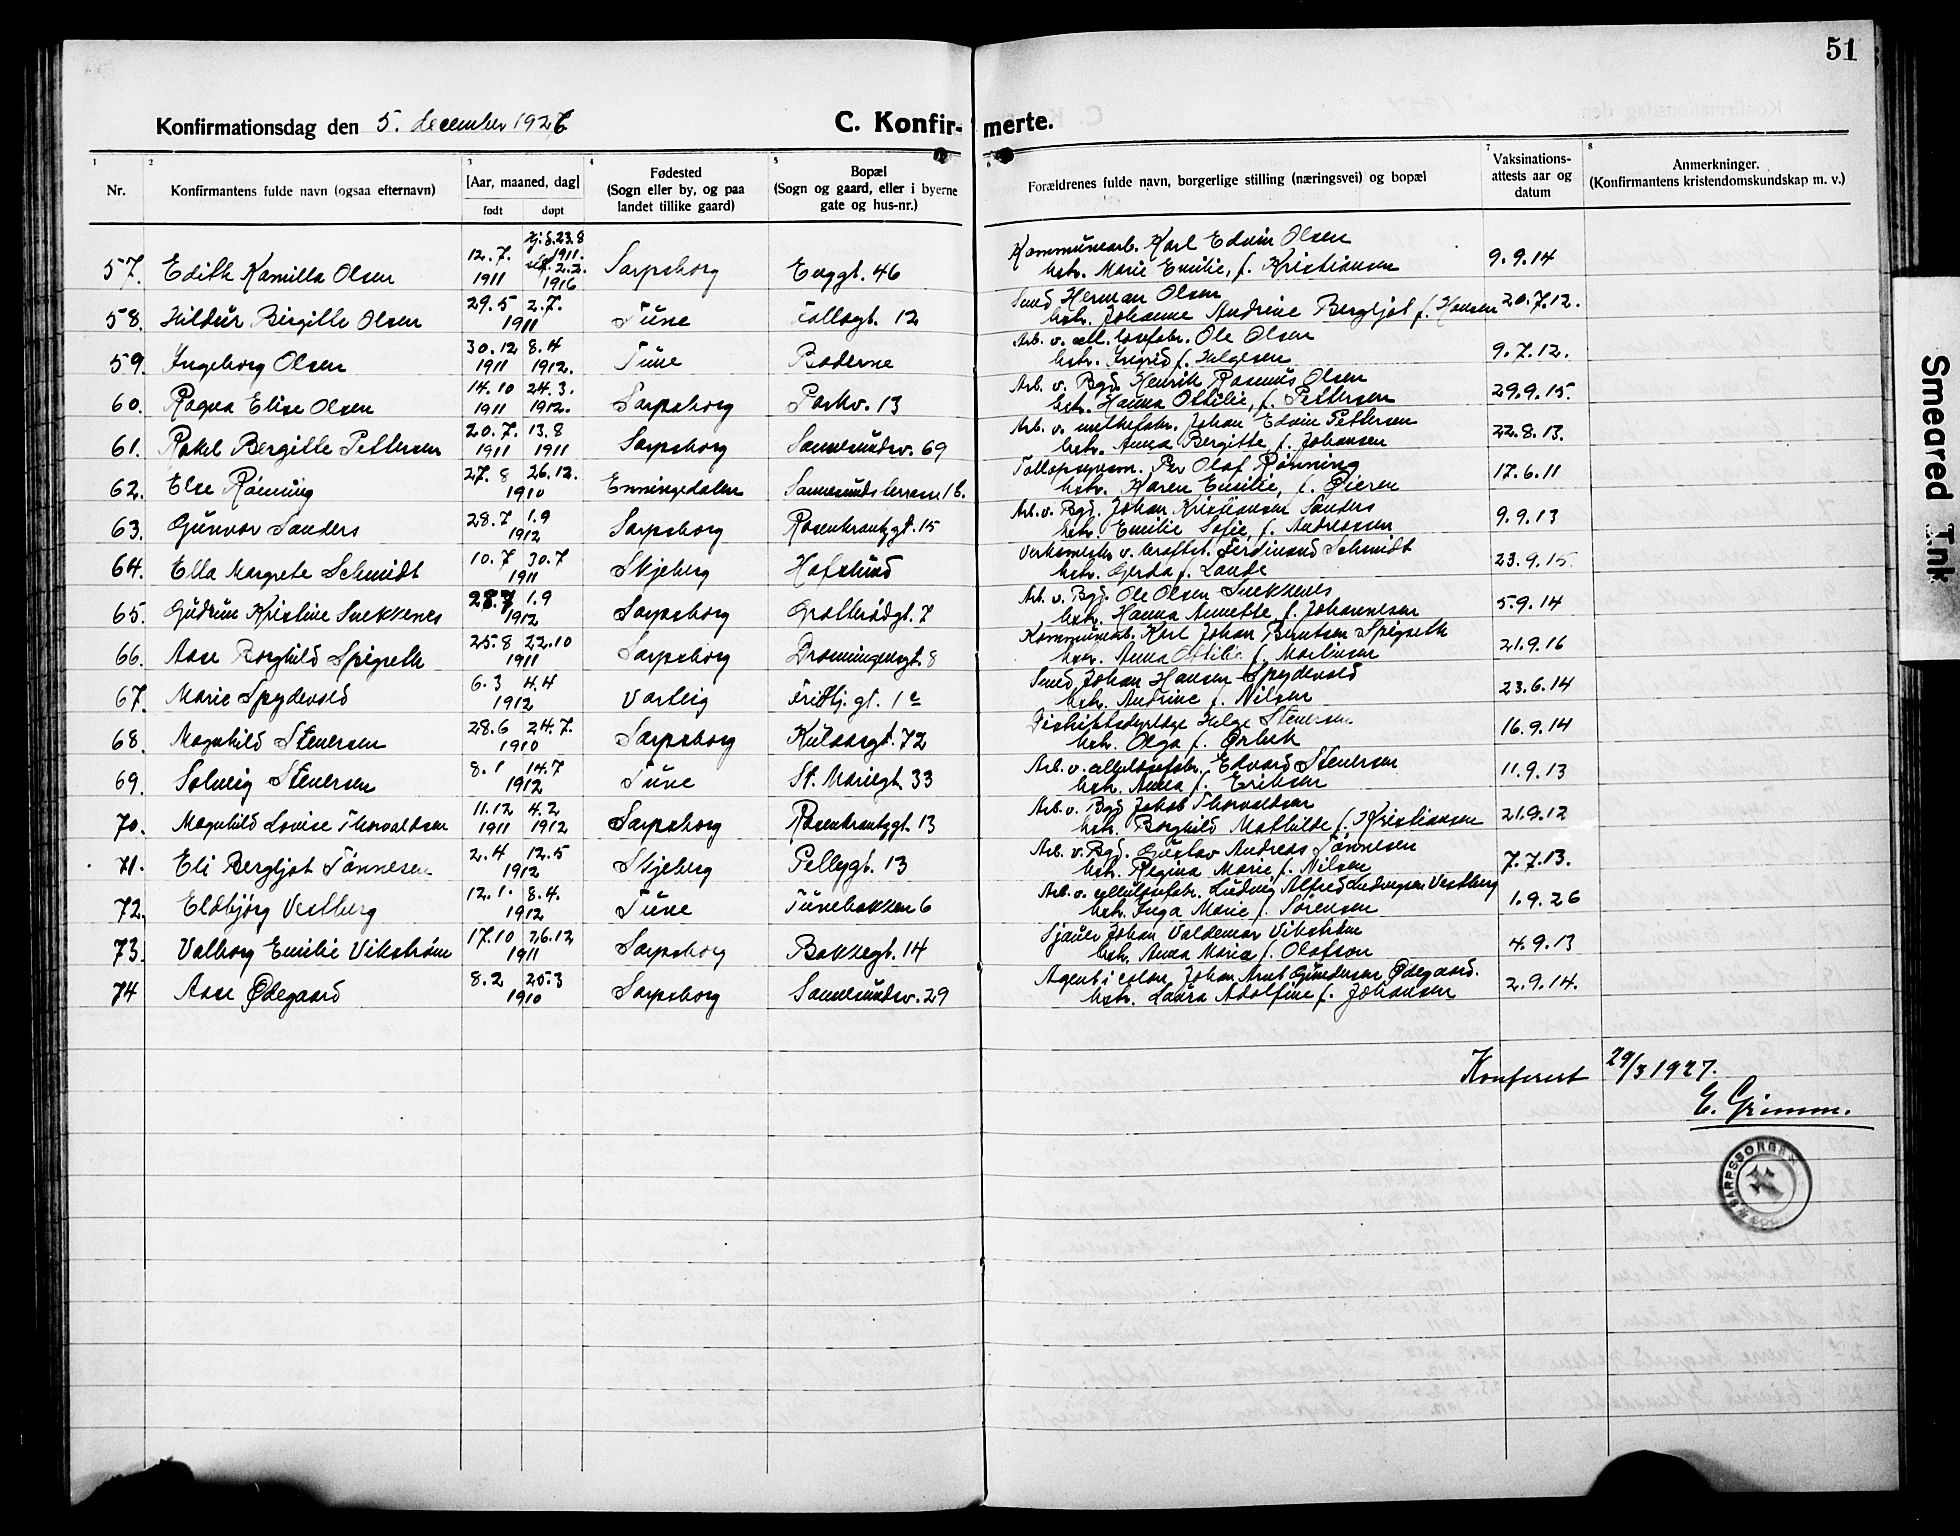 51
Konfirmationsdag den 5. december 1926
C. Konfirmerte.
1 2 3 4 5 6 7 8
Nr. Konfirmantens fulde navn (ogsaa efternavn) [Aar, maaned, dag] født døpt Fødested (Sogn eller by, og paa landet tillike gaard) Bopæl (Sogn og gaard, eller i byerne gate og hus-nr.) Forældrenes fulde navn, borgerlige stilling (næringsvei) og bopæl Vaksinations-attests aar og datum Anmerkninger. (Konfirmantens kristendomskundskap m. v.)
57. Edith Kamilla Olsen 12.7. 1911 hj.d. 23.8 1911. 2.2. 1916 Sarpsborg Enggt. 46 Kommunearb. Karl Edvin Olsen
hstr. Marie Emilie, f. Kristiansen 9.9.14
58. Hildur Birgitte Olsen 29.5 2.7. 1911 Tune Tollogt. 12 Smed Herman Olsen
hstr. Johanne Andrine Bergljot f. Hansen 20.7.12.
59. Ingeborg Olsen 30.12 1911 8.4 1912. Tune Boderne Arb. v. cell.losefabr. Ole Olsen
hstr. Ingrid f. Helgesen 9.7.12.
60. Ragna Elise Olsen 14.10 1911 24.3. 1912. Sarpsborg Parkv. 13 Arb. v. Bgd. Henrik Rasmus Olsen
hstr. Hanna Ottilie, f. Pettersen 29.9.15.
61. Rakel Bergitte Pettersen 20.7. 1911 13.8 1911 Sarpsborg Sannesundsv. 69 Arb. v. melkefabr. Johan Edvin Pettersen
hstr. Anna Bergitte f. Johansen 22.8.13.
62. Else Rønning 27.8 26.12. 1910 Enningedalen Sannesundsterrasse 1b. Tollopsynsm. Per Olaf Rønning
hstr. Karen Emilie, f. Øieren 17.6.11
63. Gunvor Sanders 28.7 1.9 1912 Sarpsborg Rosenkrantzgt. 15 Arb. v. Bgd. Johan Kristiansen Sanders
hstr. Emilie Sofie, f. Andreassen 9.9.13
64. Ella Margrete Schmidt 10.7 30.7 1911 Skjeberg Hafslund Verksmester v. kraftst. Ferdinand Schmidt
hstr. Gerda f. Lande 23.9.15.
65. Gudrun Kristine Snekkenes 28.7 1.9 1912 Sarpsborg Grotterødgt. 7 Arb. v. Bgd. Ole Olsen Snekkenes
hstr. Hanna Annette f. Johannesen 5.9.14
66. Aase Borghild Spigseth 25.8 22.10 1911 Sarpsborg Dronningensgt. 8 Kommunearb. Karl Johan Berntsen Spigseth
hstr. Anna Ottilie f. Martinsen 21.9.16
67. Marie Spydevold 6.3 4.4 1912 Varteig Fridtj. gt. 1a Smed Johan Hansen Spydevold
hstr. Andrine f. Nilsen 23.6.14
68. Magnhild Stenersen 28.6 24.7. 1910 Sarpsborg Kulaasgt. 72 Helge Stenersen
hstr. Olga f. Ørbek 16.9.14
69. Solveig Stenersen 8.1 14.7 1912 Tune St. Mariegt. 33 Arb. v. cellulosefabr. Edvard Stenersen
hstr. Anna f. Eriksen 11.9.13
70. Magnhild Lovise Thorvaldsen 11.12 1911 4.2 1912 Sarpsborg Rosenkrantzgt. 13 Arb. v. Bgd Jakob Thorvaldsen
hstr. Borghild Mathilde f. Kristiansen 21.9.12
71. Eli Bergljot Tønnesen 2.4 12.5 1912 Skjeberg Pellygt. 13 Arb. v. Bgd. Gustav Andreas Tønnesen
hstr. Regina Marie f. Nilsen 7.7.13.
72. Eldbjørg Vestberg 12.1. 8.4. 1912 Tune Tunebakken 6 Arb. v. cellulosefabr. Ludvig Alfred Ludvigsen Vestberg
hstr. Inga Marie f. Sørensen 1.9.26
73. Valborg Emilie Vikstrøm 17.10 26.12 1911 Sarpsborg Bakkegt. 14 Sjauer Johan Valdemar Vikstrøm
hstr. Anna Maria f. Olafson 4.9.13
74 Aase Ødegaard 8.2 25.3 1910 Sarpsborg Sannesundsv. 29 Agent i Johan Arnt Gundersen Ødegaard.
hstr. Laura Adolfine f. Johansen 2.9.14.
Konferert 29/3 1927.
E. Grimm.
Smeared Ink